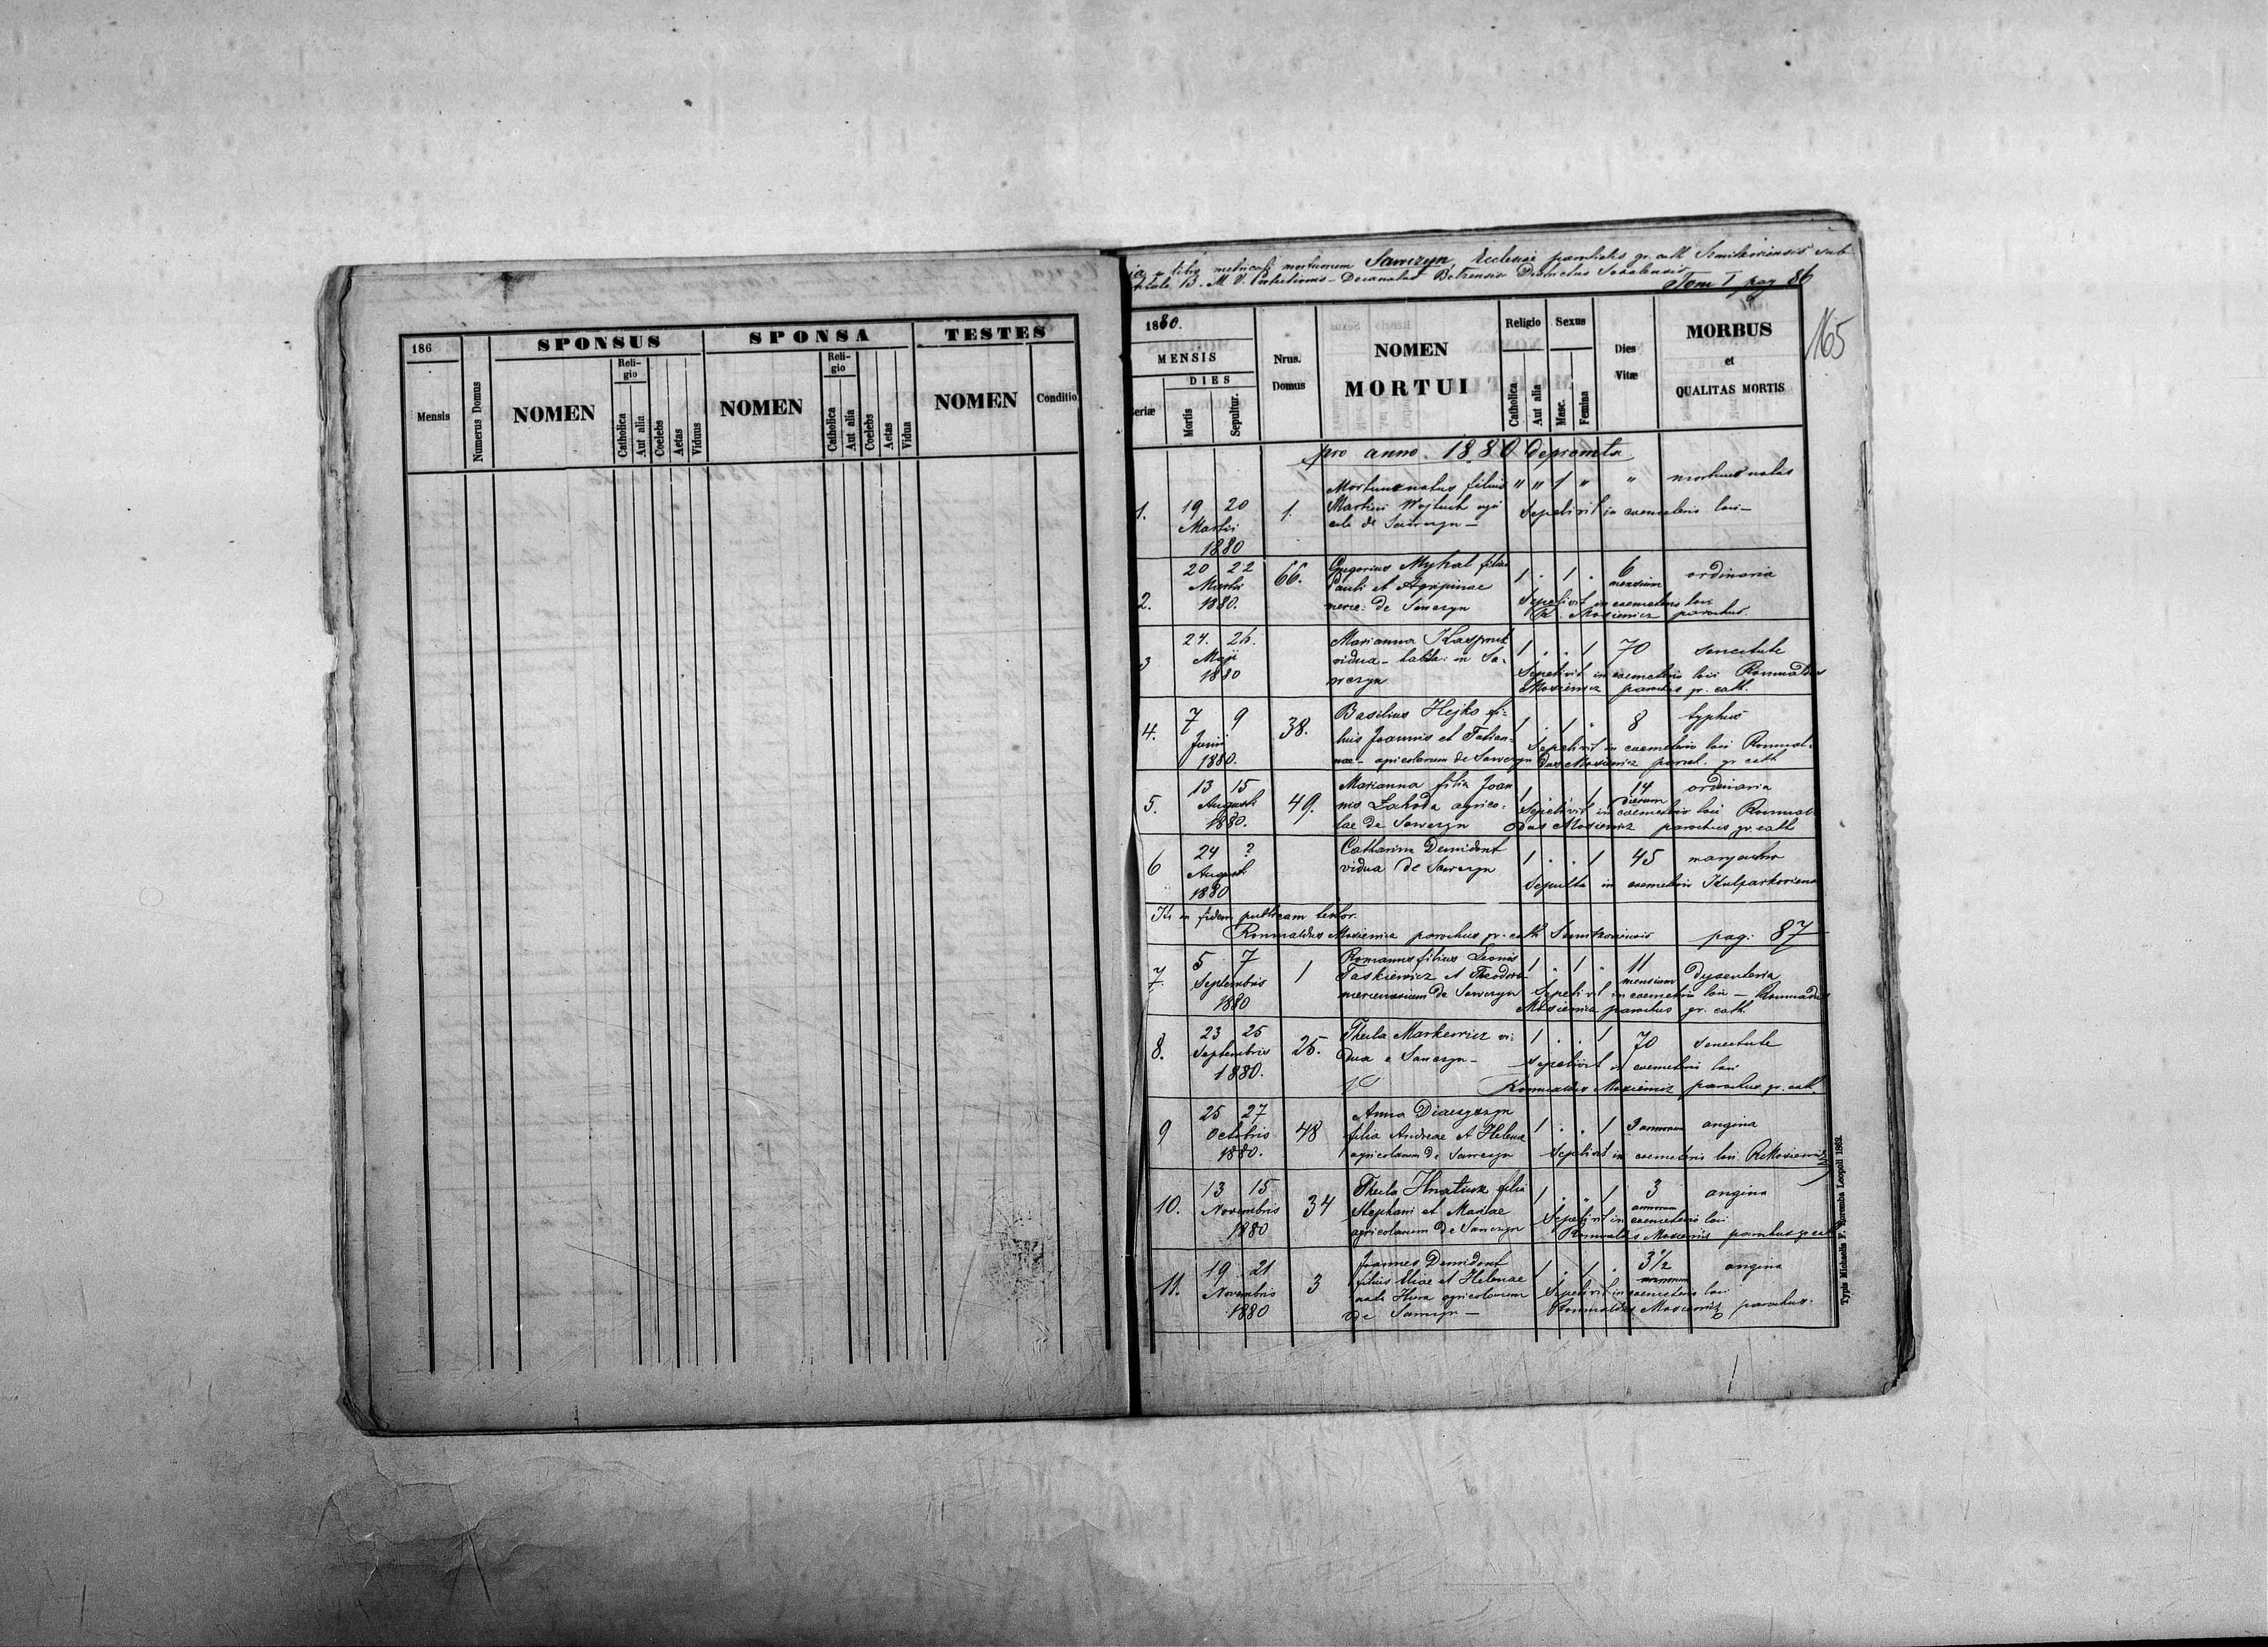 186
SPONSUS
SPONSA
TESTES
Mensis
Numerus Domus
NOMEN
Reli-
gio
Catholica
Aut alia
Coelebs
Aetas
Viduus
NOMEN
Reli-
gio
Catholica
Aut alia
Coelebs
Aetas
Vidua
NOMEN
Conditio
libro metricali mortuorum Sawczyn, Ecclesiae parochialis gr. cath sub
B. M. V. Protectionis - Decanatus Belzensis Districtus Sokalensis
Tom I pag 86
165
1880.
MENSIS
DIES
eriæ
Mortis
Sepultur.
Nrus.
Domus
NOMEN
MORTUI
Religio
Catholica
Aut alia
Sexus
Masc.
Femina
Dies
Vitæ
MORBUS
et
QUALITAS MORTIS
pro anno 1880 deprompta
1. 19 20 Martii 1880 1.
filius " " 1 " "
Martini Wojtiuk
de Sawczyn —
Sepelivit in coemeterio loci —
2. 20 22 Martii 1880. 66.
Gregorius Myhal filius
Pauli et Agripinae
merc: de Sawczyn
1 . 1 . 6 mensium ordinaria
Sepelivit in coemeterio loci
R. Mosiewicz parochus.
3 24. 26. Maji 1880
Marianna
vidua - in Sa-
wczyn
1 . . 1 70 senectute
Sepelivit in coemeterio loci Romualdus
Mosiewicz parochus gr. cath.
4. 7 9 Junii 1880. 38.
Basilius Hejko fi-
lius Joannis et Tatian-
nae - agricolarum de Sawczyn
1 . 1 " 8 typhus
Sepelivit in coemeterio loci Romual-
dus Mosiewicz paroch. gr cath
5. 13 15 Augusti 1880. 49.
Marianna filia Joan
nis Lahoda agrico-
lae de Sawczyn
1 1 14 dierum ordinaria
Sepelivit in coemeterio loci Romual-
dus Mosiewicz parochus gr. cath
6 24 ? Augusti 1880
Catharina Demidont
vidua de Sawczyn
1 . . 1 45
Sepulta in coemeterio
in fidem publicam testor.
Romualdus Mosiewicz parochus gr. cath pag: 87
7. 5 7 Septembris 1880 1
Romanus filius Leonis
Taskiewicz et Theodora
de Sawczyn
1 . 1 . 11 mensium dysenteria
Sepelivit in coemeterio loci — Romualdus
Mosiewicz parochus gr. cath
8. 23 25 Septembris 1880. 25.
Thecla Markewicz vi-
dua e Sawczyn —
1 . . 1 70 senectute
Sepelivit in coemeterio loci
Romualdus Mosiewicz parochus gr. cath.
9 25 27 Octobris 1880. 48
Anna
filia Andreae et Helena
agricolarum de Sawczyn
1 . . 1 3 annorum angina
Sepelivit in coemeterio loci. R Mosiewicz
10. 13 15 Novembris 1880 34
Thecla Hnatiuk filia
Stephani et Mariae
agricolarum de Sawczyn
1 . . 1 3 annorum angina
Sepelivit in coemeterio loci
Romualdus Mosiewicz parochus gr cat
11. 19 21 Novembris 1880 3
Joannes Demidont
filius Eliae et Helenae
agricolarum
de Sawczyn —
1 . 1 . 3 1/2 annorum angina
Sepelivit in coemeterio loci
Romualdus Mosiewicz parochus.
Typis Michaelis F. Poremba Leopoli 1862